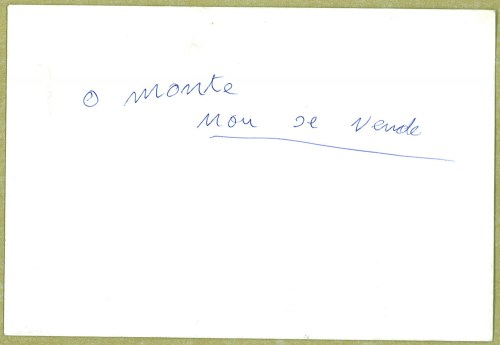 O monte
non se vende